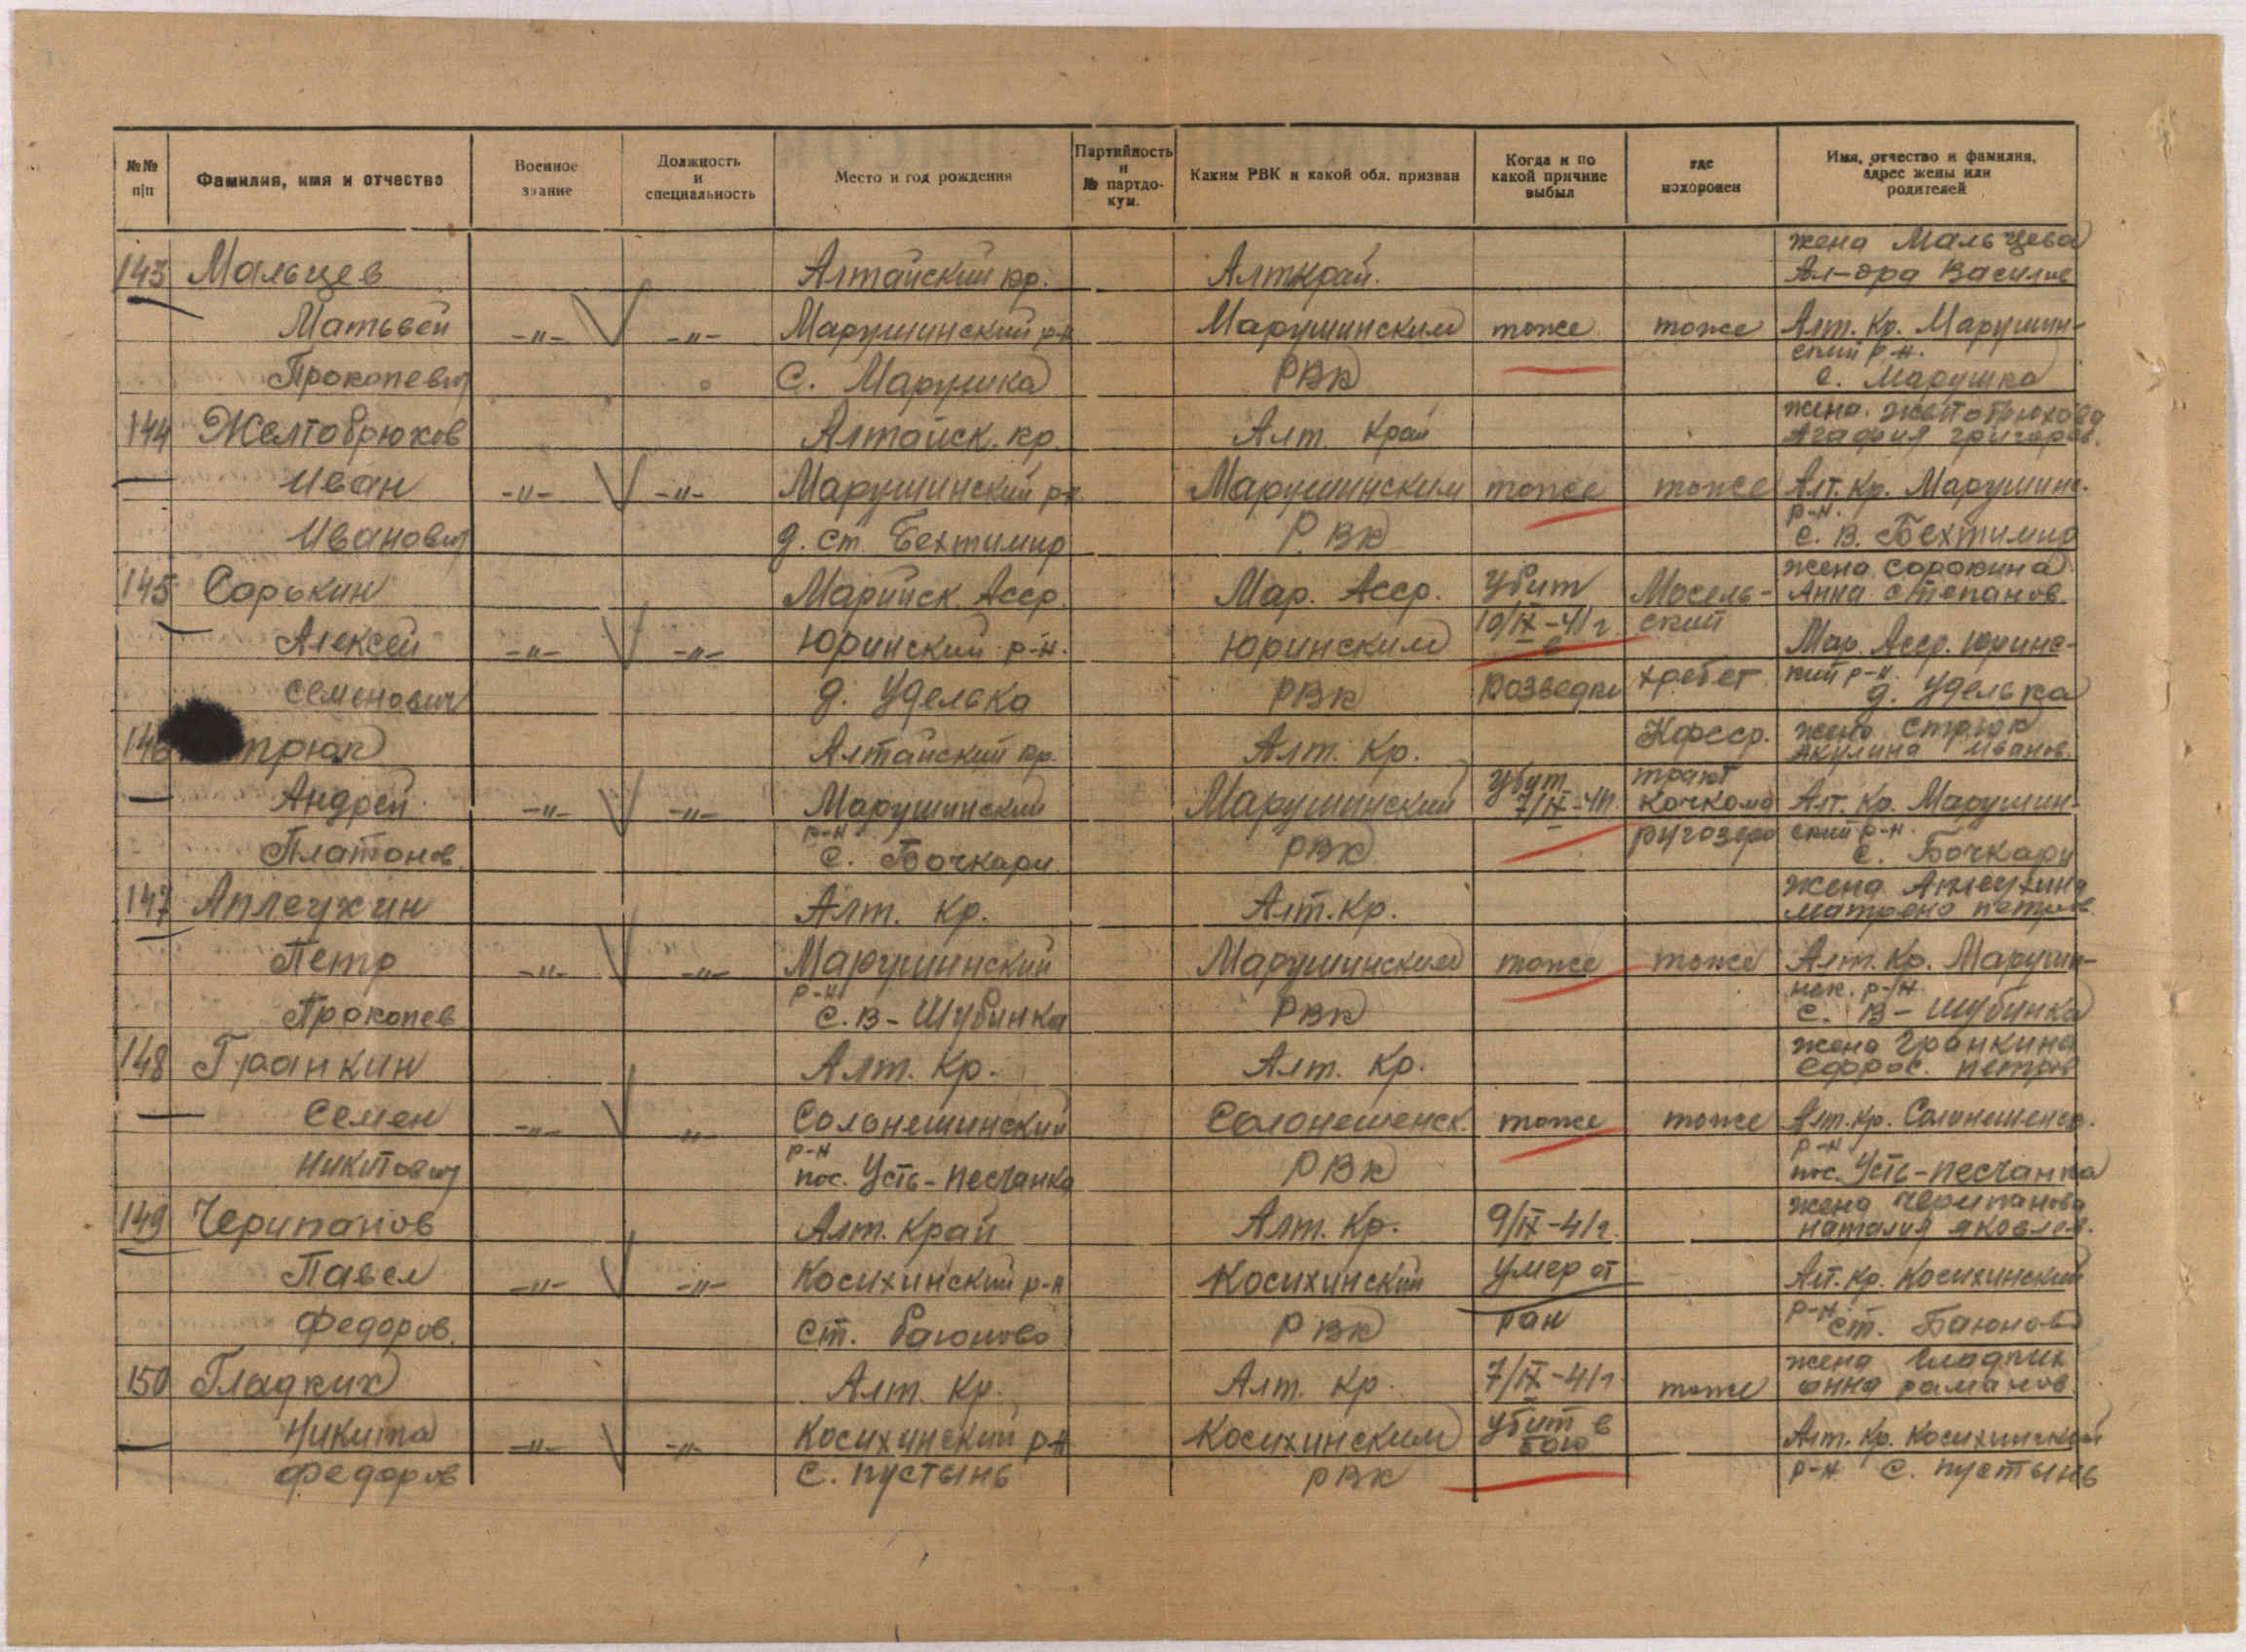 №№ п|п
Фамилия, имя и отчество
Военное звание
Должность и специальность
Место и год рождения
Партийность и № партдокум.
Каким РВК и какой обл. призван
Когда и по какой причине выбыл
где похоронен
Имя, отчество и фамилия, адрес жены или родителей
жена Мальцева
143 Мальцев Алтайский кр. Алткрай. Ал-дра Василие
Матьвей -"- -"- Марушинский р-н Марушинским тоже тоже Алт. кр. Марушин-
ский р-н.
Прокопевич С. Марушка РВК с. Марушка
жена. Желтобрюхова
144 Желтобрюхов Алтайск. кр. Алт. край Агафия григоров.
Иван -"- -"- Марушинский р-н Марушинским тоже тоже Алт. кр. Марушинс.
р-н.
Иванович д. ст. Бехтимир РВК с. В. Бехтимир
жена сорокина
145 Сорькин Марийск. Асср. Мар. Асср. убит Мосель- Анна степанов.
Алексей -"- -"- Юринский р-н. Юринским 10/IX-41г ский Мар. Асср. юринс-
в
семенович д. Уделька РВК розведки хребет кий р-н. д. уделька
Кфсср. жена стрюк
146 трюк Алтайский кр. Алт. кр. акулина иванов.
Андрей -"- -"- Марушинский Марушинский убит 7/IX-41г. тракт кочкома Алт. кр. Марушин-
р-н
Платонов. с. Бочкари РВК ругозеро ский р-н. с. Бочкари
жена Аплеухина
147 Аплеухин Алт. кр. Алт. кр. матрена петров.
Петр -"- -"- Марушинский Марушинским тоже тоже Алт. кр. Марушин-
р-н нск. р-н
Прокопев с. в-Шубинка РВК с. в-Шубинка
жена гранкина
148 Гранкин Алт. кр. Алт. кр. ефрос. петров
Семен -"- -"- Солонешинский Солонешенск. тоже тоже Алт. кр. Солонешенск.
р-н р-н
Никитович пос. Усть-песчанка РВК пос. Усть-песчанка
жена черипанова
149 Черипанов Алт. край Алт. кр. 9/IX-41г. наталия яковлев.
Павел -"- -"- Косихинский р-н Косихинский умер от Алт. кр. Косихинский
Федоров. ст. Баюново РВК ран р-н. ст. Баюново
жена гладких
150 Гладких Алт. кр. Алт. кр. 7/IX-41г. тоже анна раманов
Никита -"- -"- Косихинский р-н Косихинским убит в бою Алт. кр. Косихинский
федоров с. пустынь РВК р-н с. пустынь